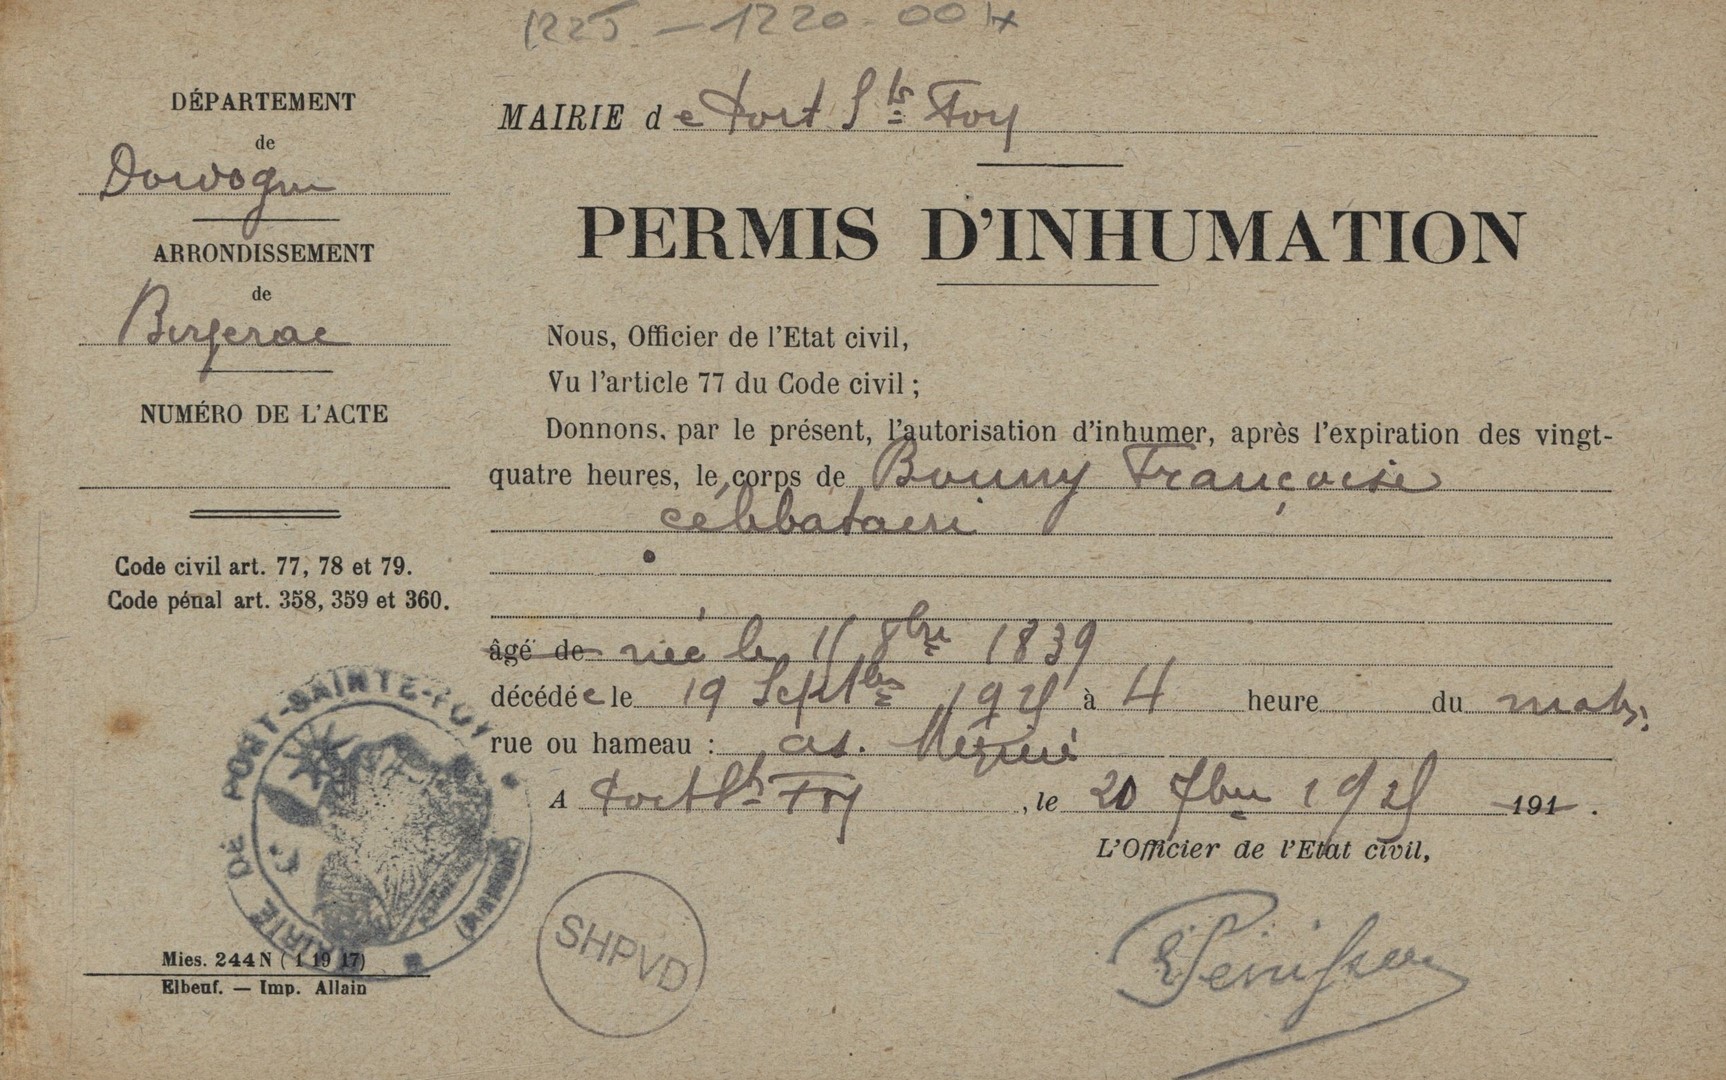 1225-1220-004
DÉPARTEMENT
de
Dordogne
ARRONDISSEMENT
de
Bergerac
NUMÉRO DE L'ACTE
Code civil art. 77, 78 et 79.
Code pénal art. 358, 359 et 360.
MAIRIE DE PORT-SAINTE-FOY
Mies. 244 N (1 19 17)
Elbeuf. — Imp. Allain
MAIRIE de Port Ste Foy
PERMIS D'INHUMATION
Nous, Officier de l'Etat civil,
Vu l'article 77 du Code civil ;
Donnons, par le présent, l'autorisation d'inhumer, après l'expiration des vingt-
quatre heures, le corps de Bonny Françoise
célibataire
âgé de née le 8bre 1839
décédée le 19 Septbre 1925 à 4 heure du matin
rue ou hameau : as.
A Port Ste Foy, le 20 7bre 1925 191 .
L'Officier de l'Etat civil,
SHPVD